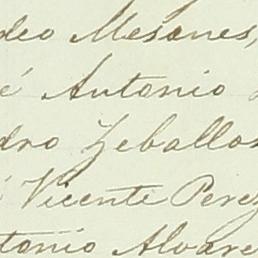 deo Mesones,
é Antonio
dro Zeballos
Vicente Perez
tonio Alvare